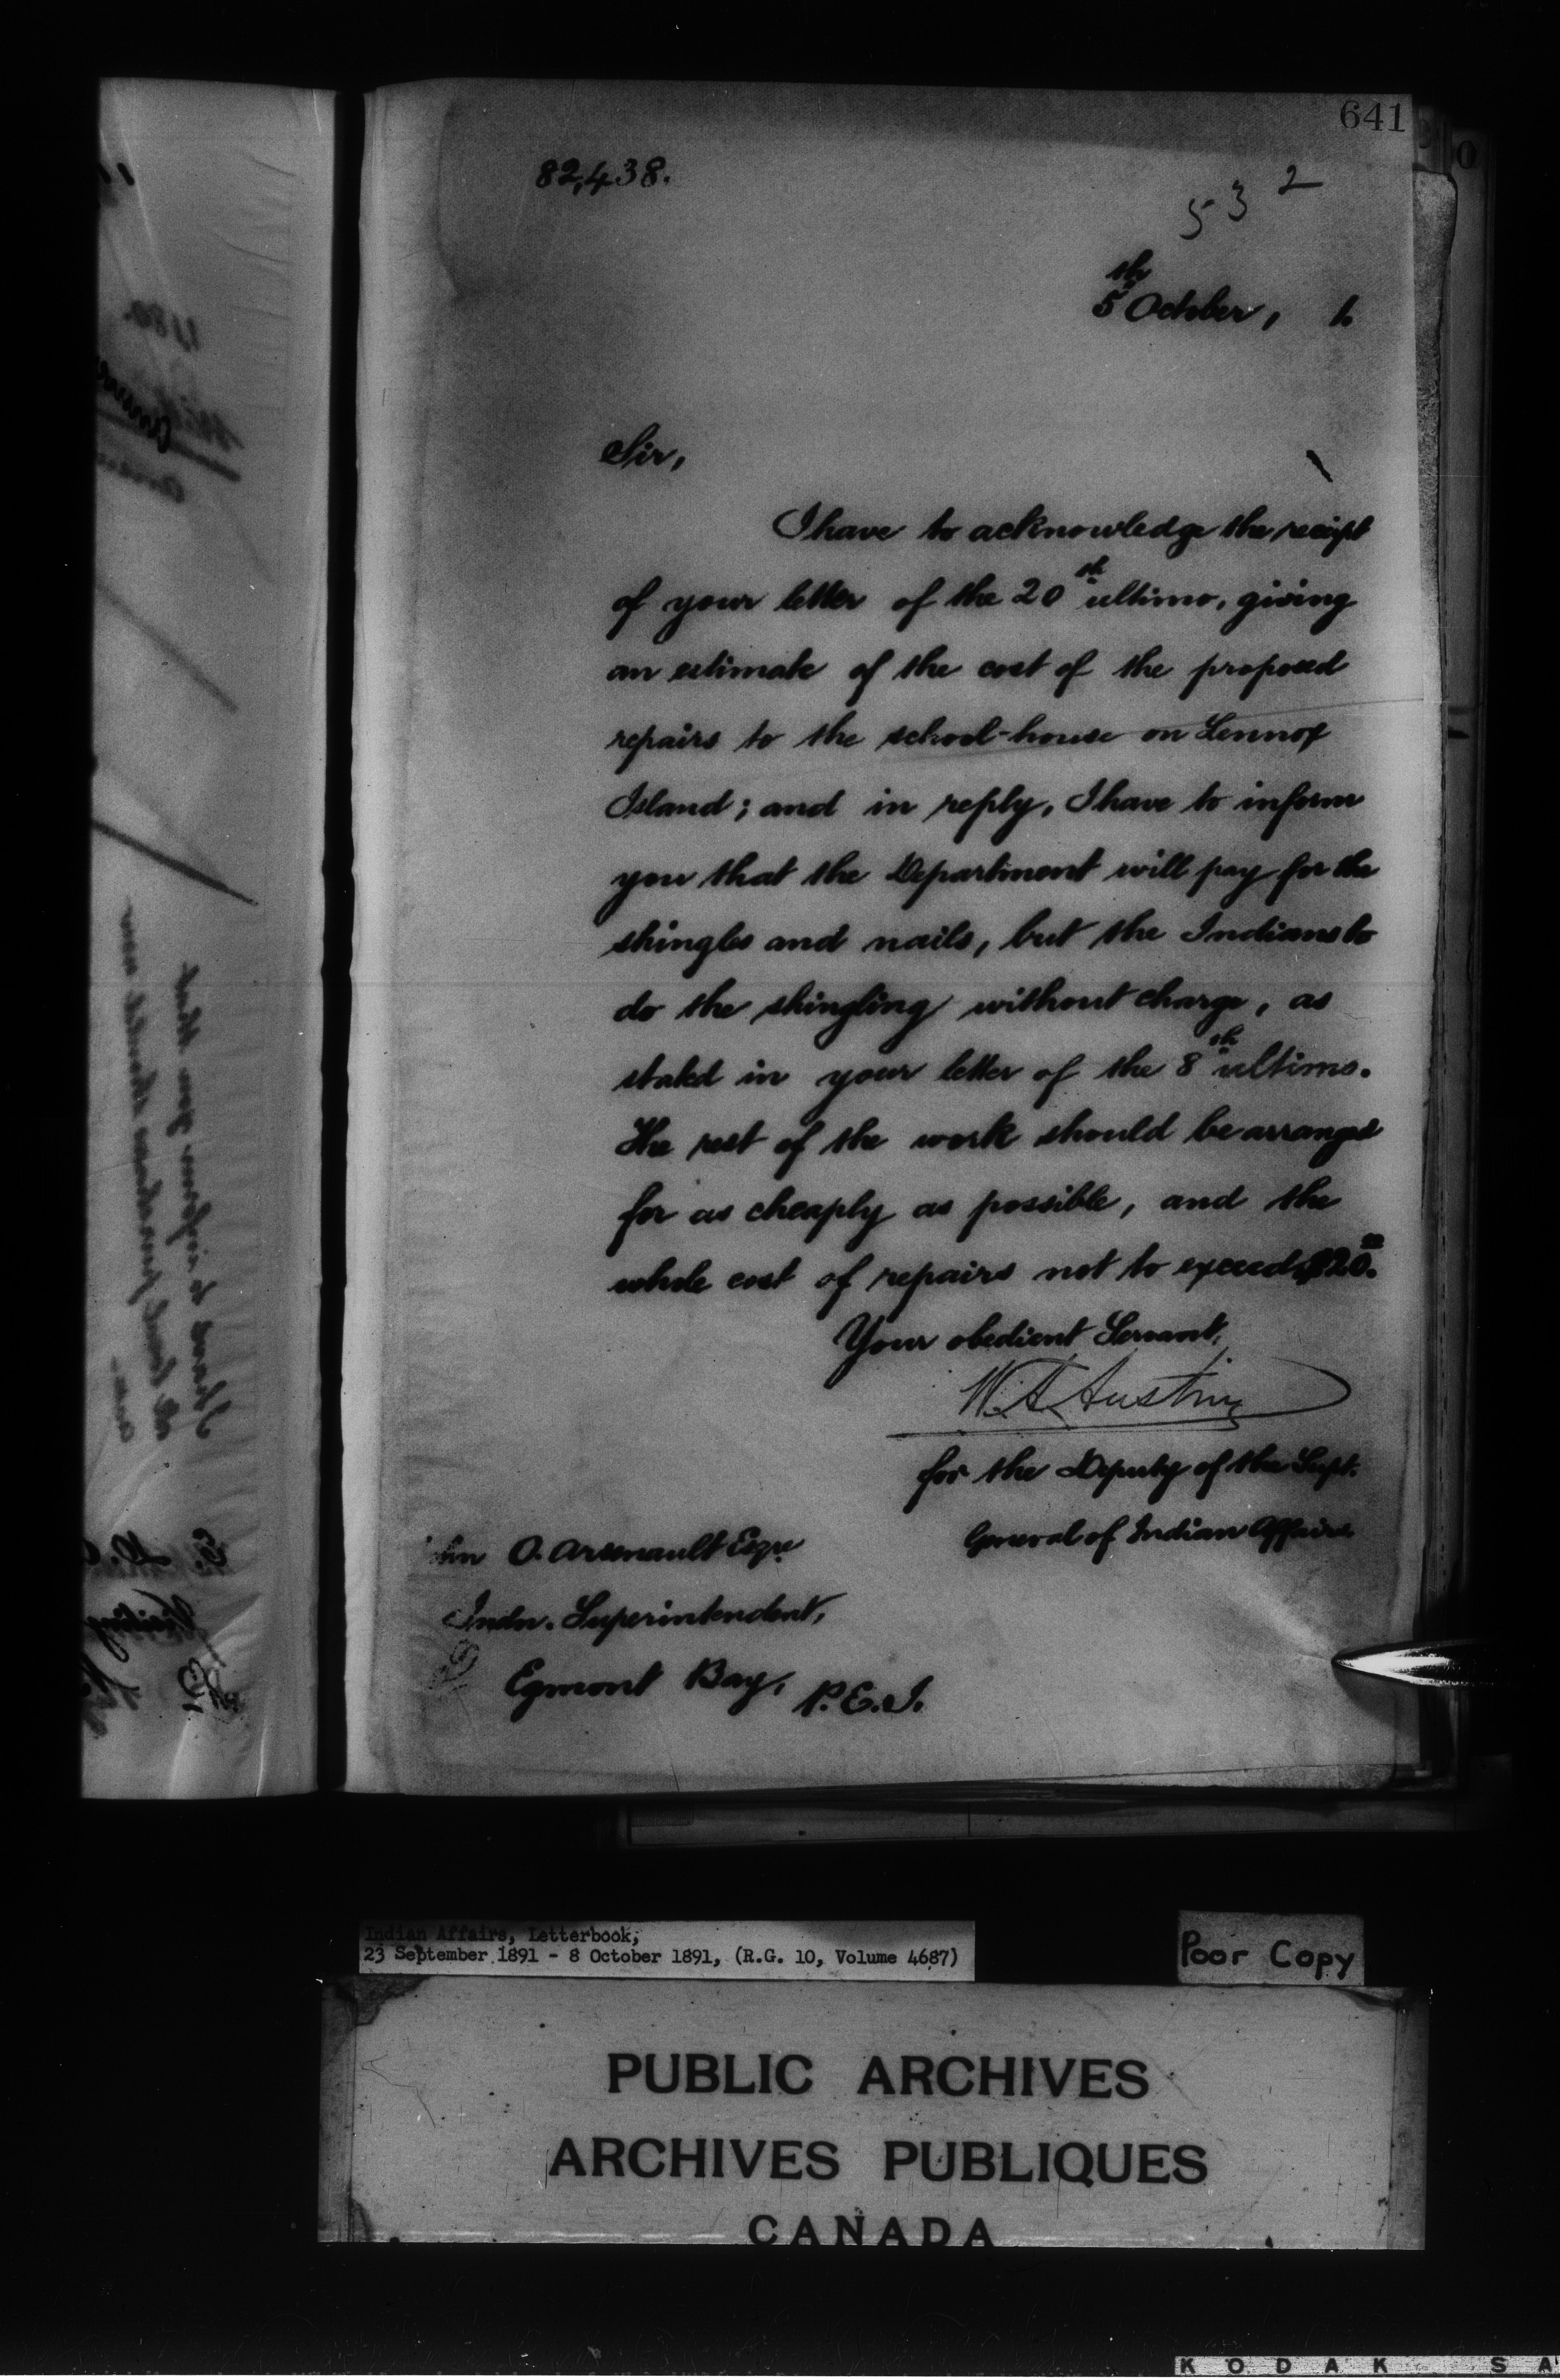 641
82,438.
532
5th October, 1.
Sir,
I have to acknowledge the receipt
of your letter of the 20th ultimo, giving
an estimate of the cost of the proposed
repairs to the school-house on Lennox
Island; and in reply, I have to inform
you that the Department will pay for the
shingles and nails, but the Indians to
do the shingling without charge, as
stated in your letter of the 8th ultimo.
The rest of the work should be arranged
for as cheaply as possible, and the
whole cost of repairs not to exceed $20.00
Your obedient Servant,
W. A. Austin
for the Deputy of the Supt.
General of Indian Affairs
O. Arsenault Esqre
Indn. Superintendent,
Egmont Bay, P.E.I.
Indian Affairs, Letterbook,
23 September 1891 - 8 October 1891, (R.G. 10, Volume 4687)
Poor Copy
PUBLIC ARCHIVES
ARCHIVES PUBLIQUES
CANADA
KODAK SA